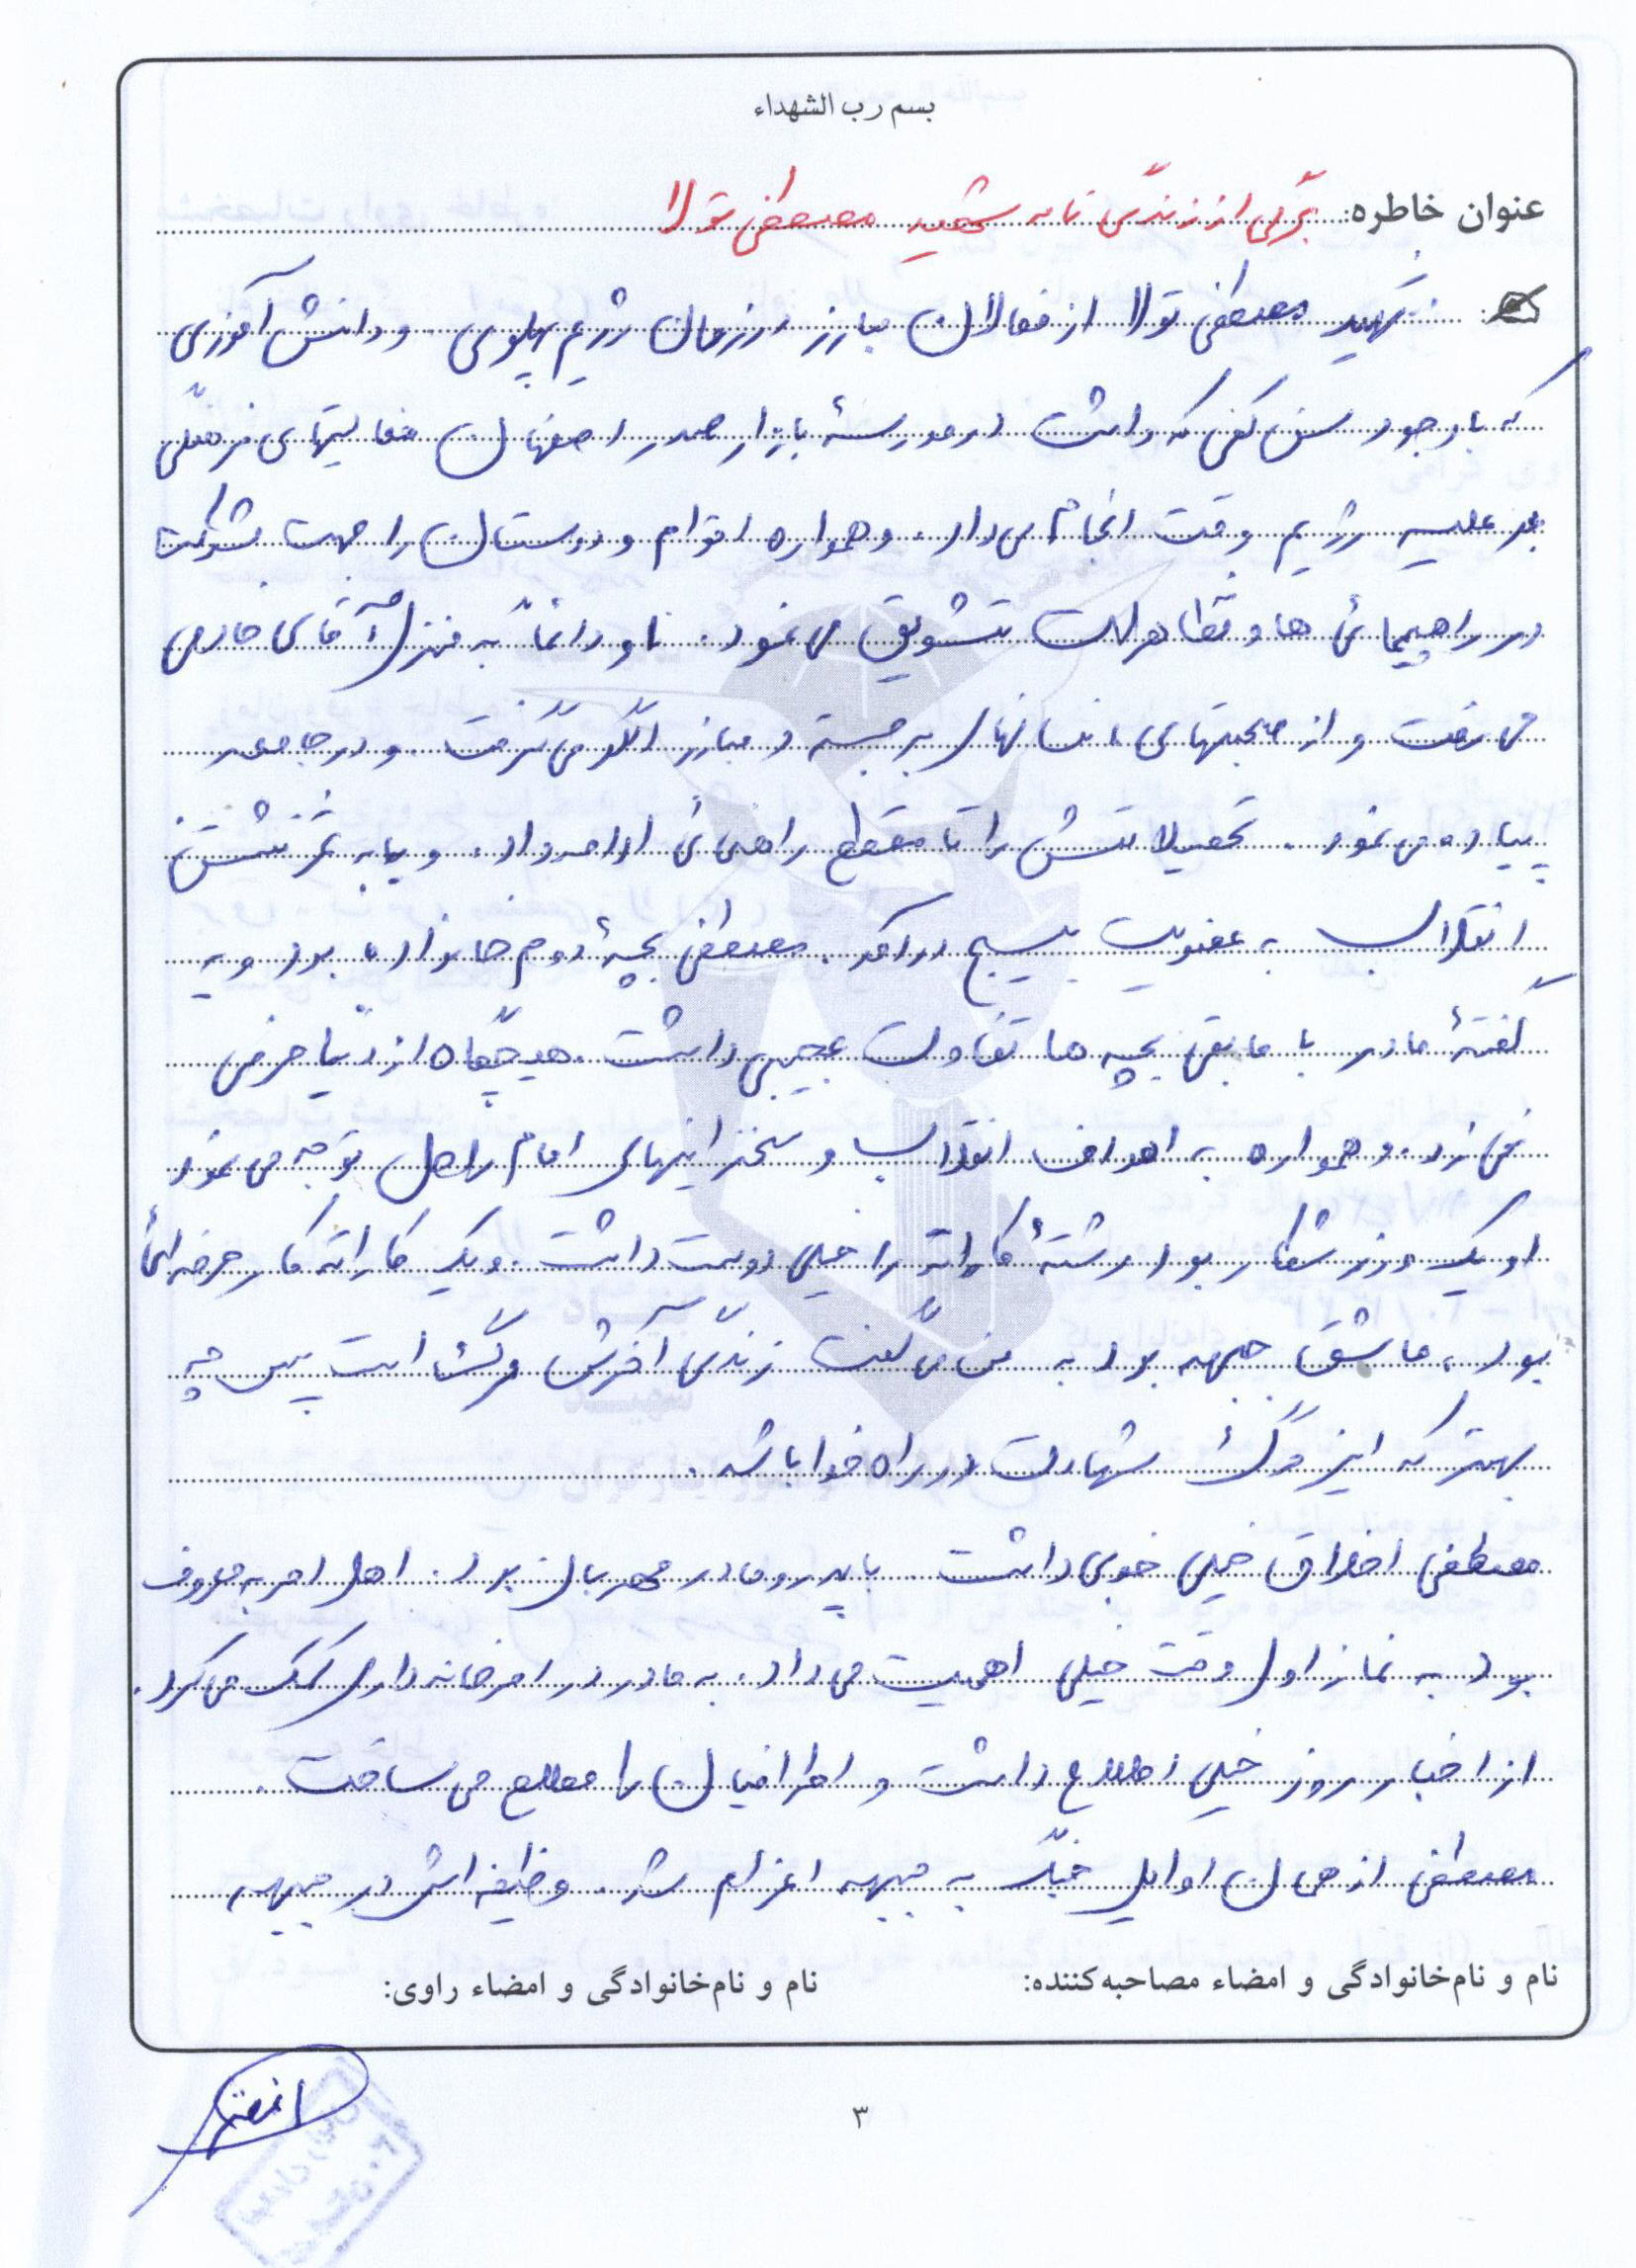 بسم رب الشهداء
عنوان خاطره: برگی از زندگی نامه شهید مصطفی تولا
شهید مصطفی تولا از فعالان مبارز در زمان رژیم پهلوی و دانش آموزی
که با وجود سن کمی که داشت در مدرسهٔ بازار صدر اصفهان فعالیتهای فرهنگی
بر علیه رژیم وقت انجام می داد. و همواره اقوام و دوستان را جهت شرکت
در راهپیمائی ها و تظاهرات تشویق می نمود. او دائماً به منزل آقای خادمی
می رفت و از صحبتهای انسانهای برجسته و مبارز الگو می گرفت و در جامعه
پیاده می نمود. تحصیلاتش را تا مقطع راهنمائی ادامه داد. و با به ثمر نشستن
انقلاب به عضویت بسیج درآمد. مصطفی بچهٔ دوم خانواده بود و به
گفتهٔ مادر با مابقی بچه ها تفاوت عجیبی داشت. هیچگاه از دنیا حرفی
نمی زد. و همواره به اهداف انقلاب و سخنرانیهای امام راحل توجه می نمود
او یک ورزشکار بود رشتهٔ کاراته را خیلی دوست داشت. و یک کاراته کار حرفه ائی
بود، عاشق جبهه بود به من می گفت زندگی آخرش مرگ است پس چه
بهتر که این مرگ شهادت در راه خدا باشد.
مصطفی اخلاق خیلی خوبی داشت با پدر و مادر مهربان بود. اهل امر به معروف
بود به نماز اول وقت خیلی اهمیت می داد. به مادر در امر خانه داری کمک می کرد.
از اخبار روز خیلی اطلاع داشت و اطرافیان را مطلع می ساخت.
مصطفی از همان اوایل جنگ به جبهه اعزام شد. وظیفه اش در جبهه
نام و نام‌خانوادگی و امضاء مصاحبه‌کننده:
نام و نام‌خانوادگی و امضاء راوی:
۳